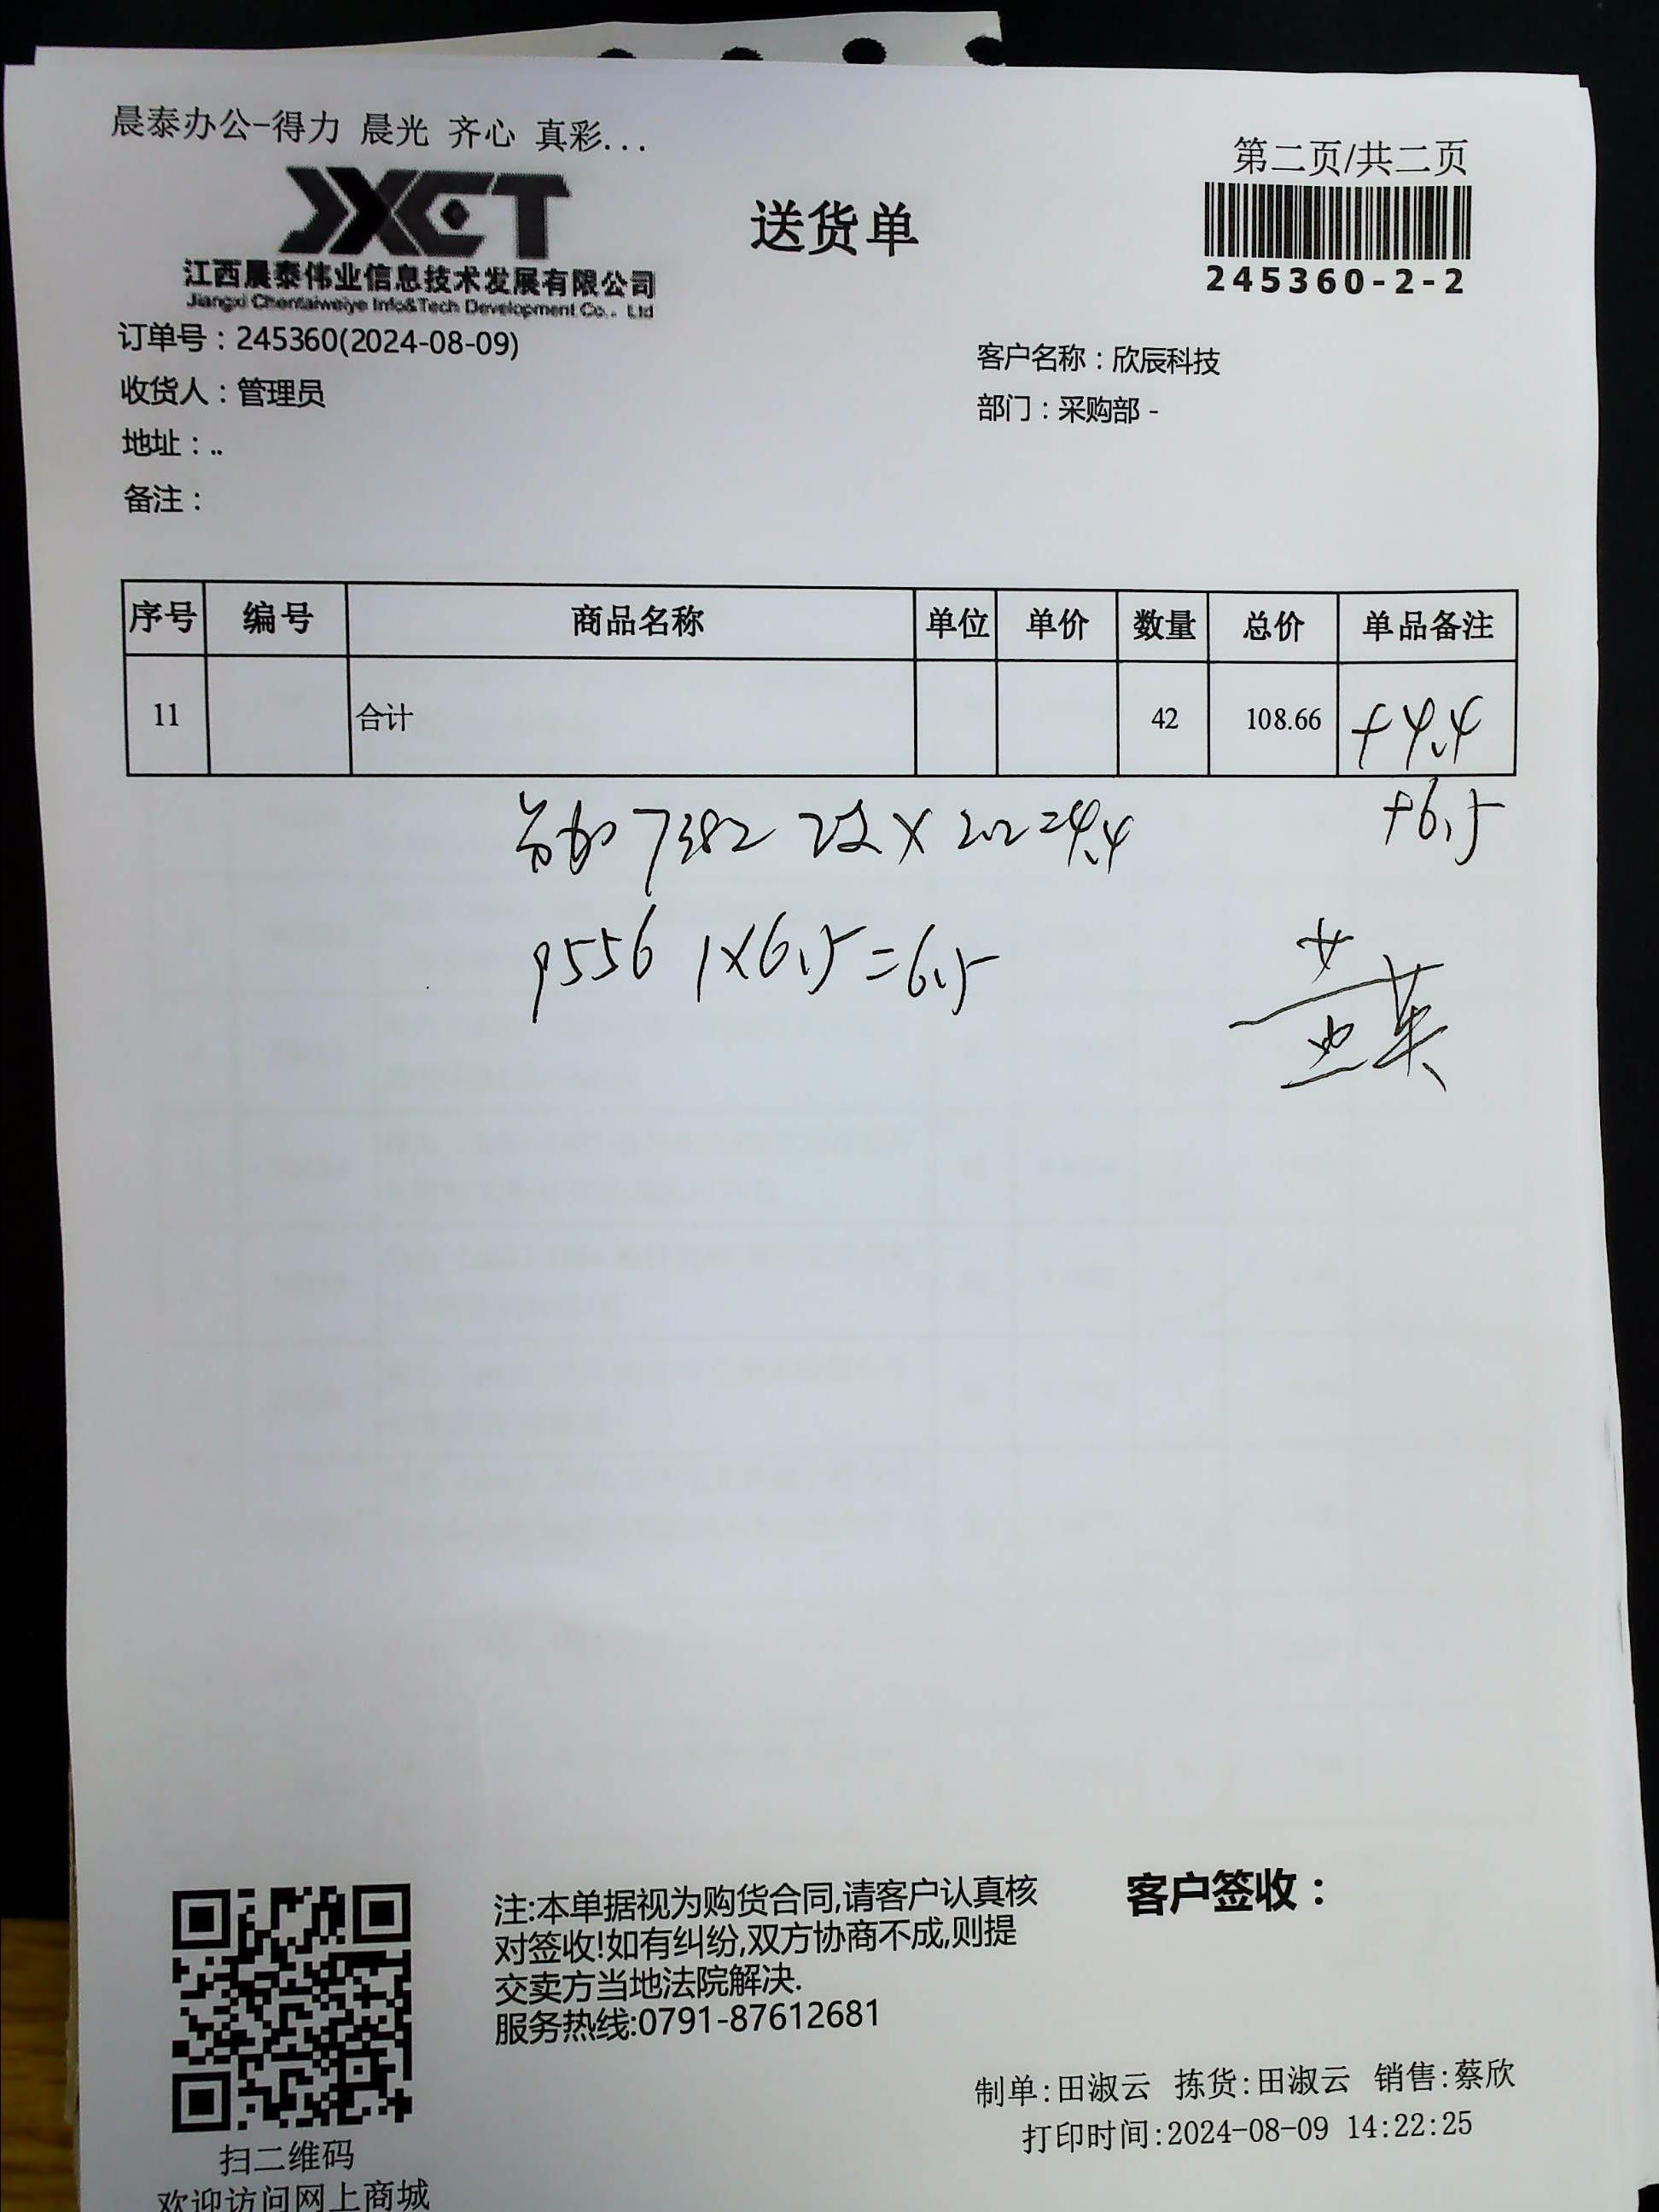 晨泰办公-得力 晨光 齐心 真彩...
第二页/共二页
JXCT
送货单
江西晨泰伟业信息技术发展有限公司
Jiangxi Chentaiweiye Info&Tech Development Co., Ltd
245360-2-2
订单号：245360(2024-08-09)
客户名称：欣辰科技
收货人：管理员
部门：采购部 -
地址：..
备注：
序号 编号 商品名称 单位 单价 数量 总价 单品备注
11 合计 42 108.66 +4.4
+6.5
另加 7382 2支×2.2=4.4
9556 1×6.5=6.5
注:本单据视为购货合同,请客户认真核
对签收!如有纠纷,双方协商不成,则提
交卖方当地法院解决.
服务热线:0791-87612681
客户签收：
制单:田淑云 拣货:田淑云 销售:蔡欣
打印时间:2024-08-09 14:22:25
扫二维码
欢迎访问网上商城